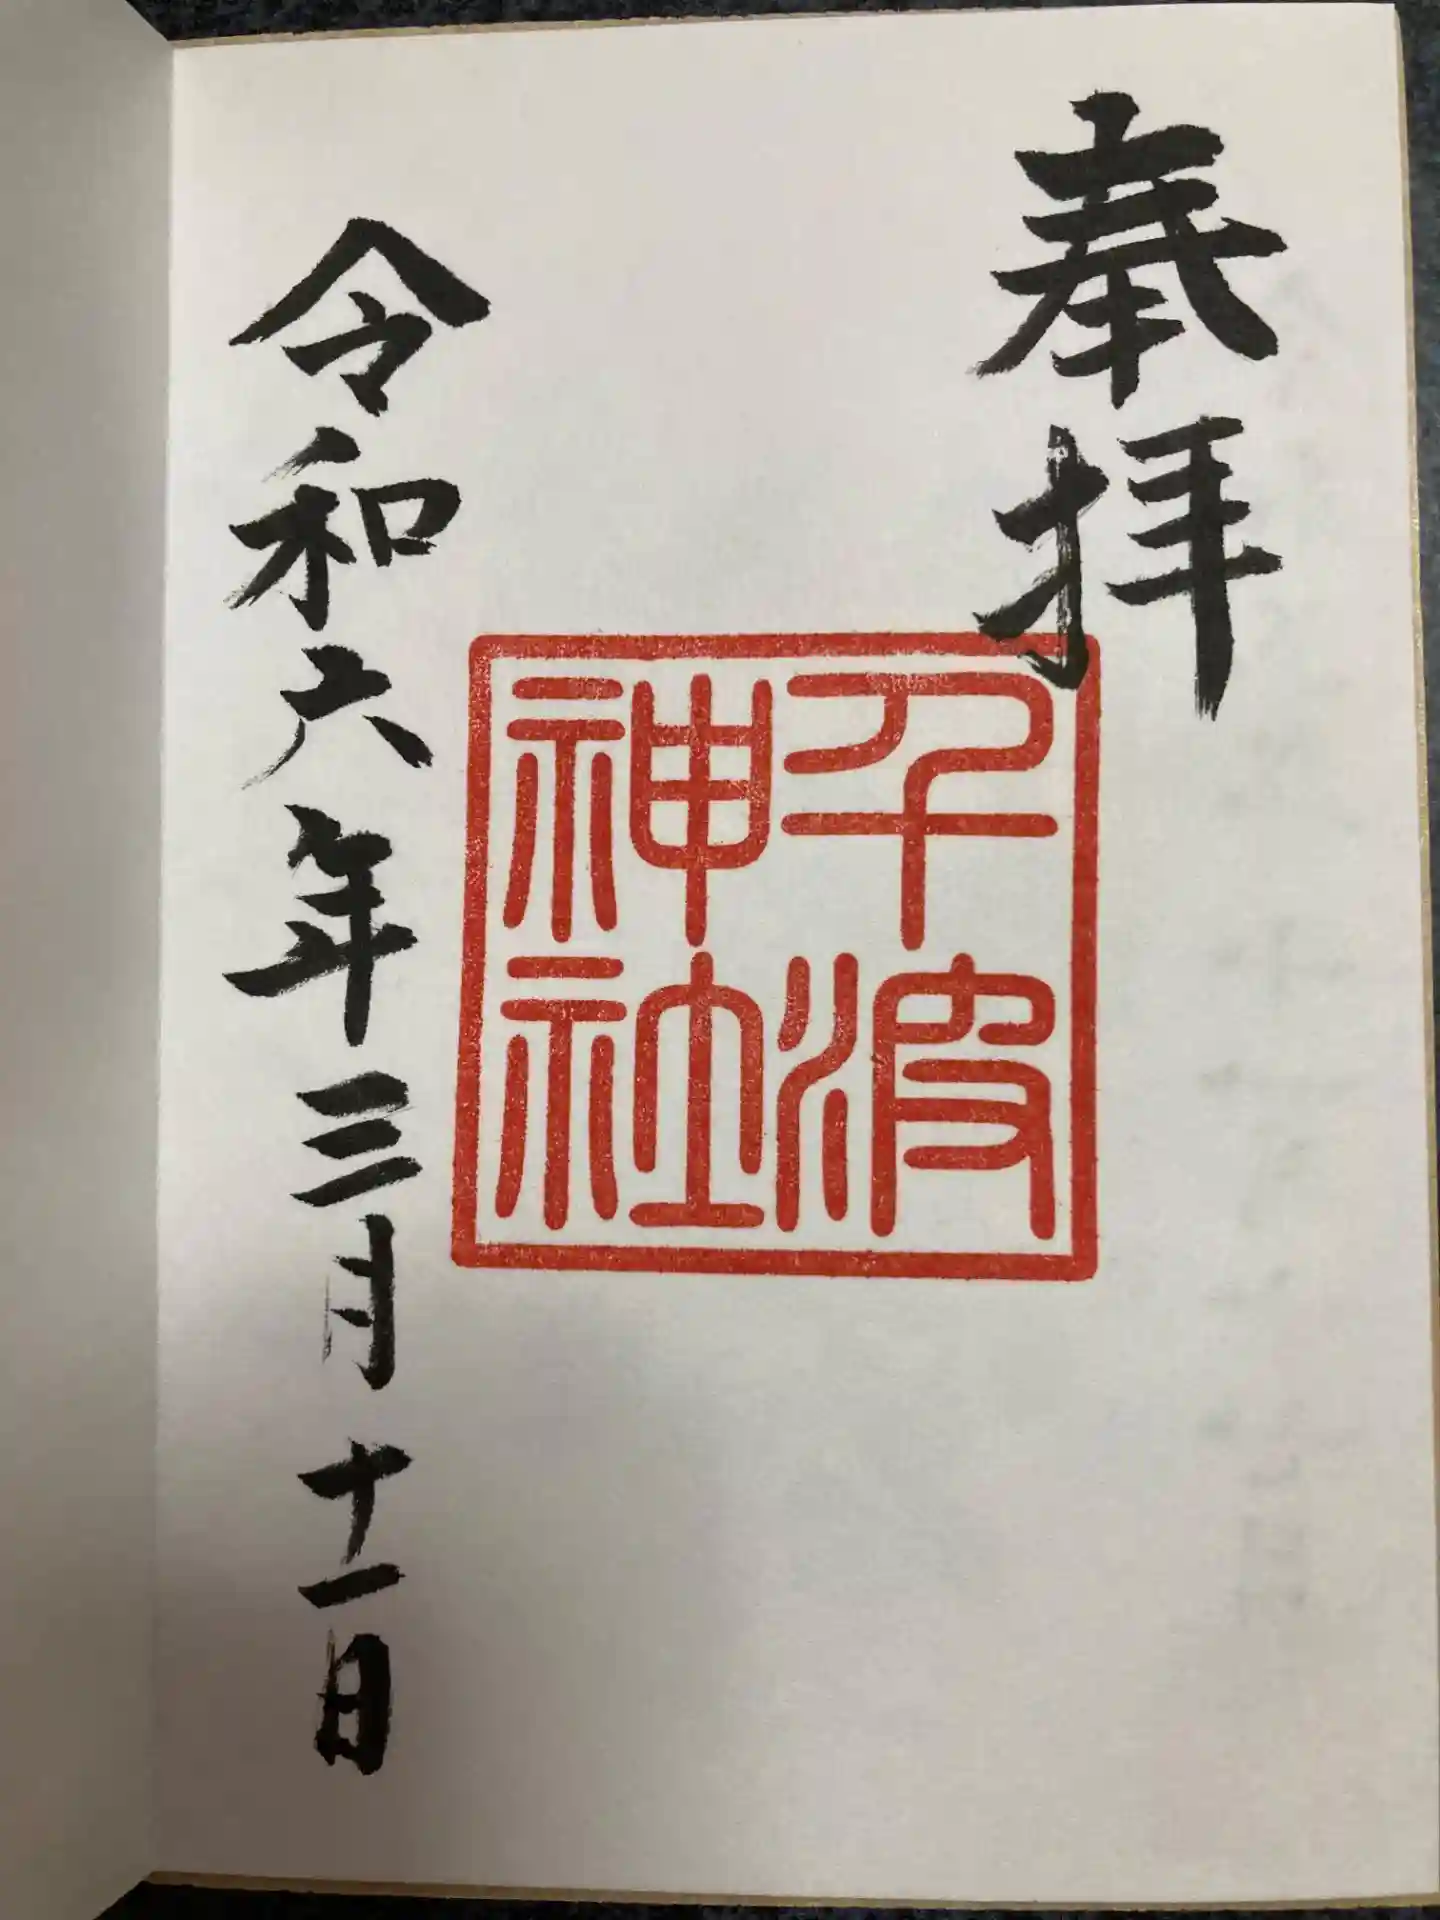 奉拝
千波
神社
令和六年三月十一日